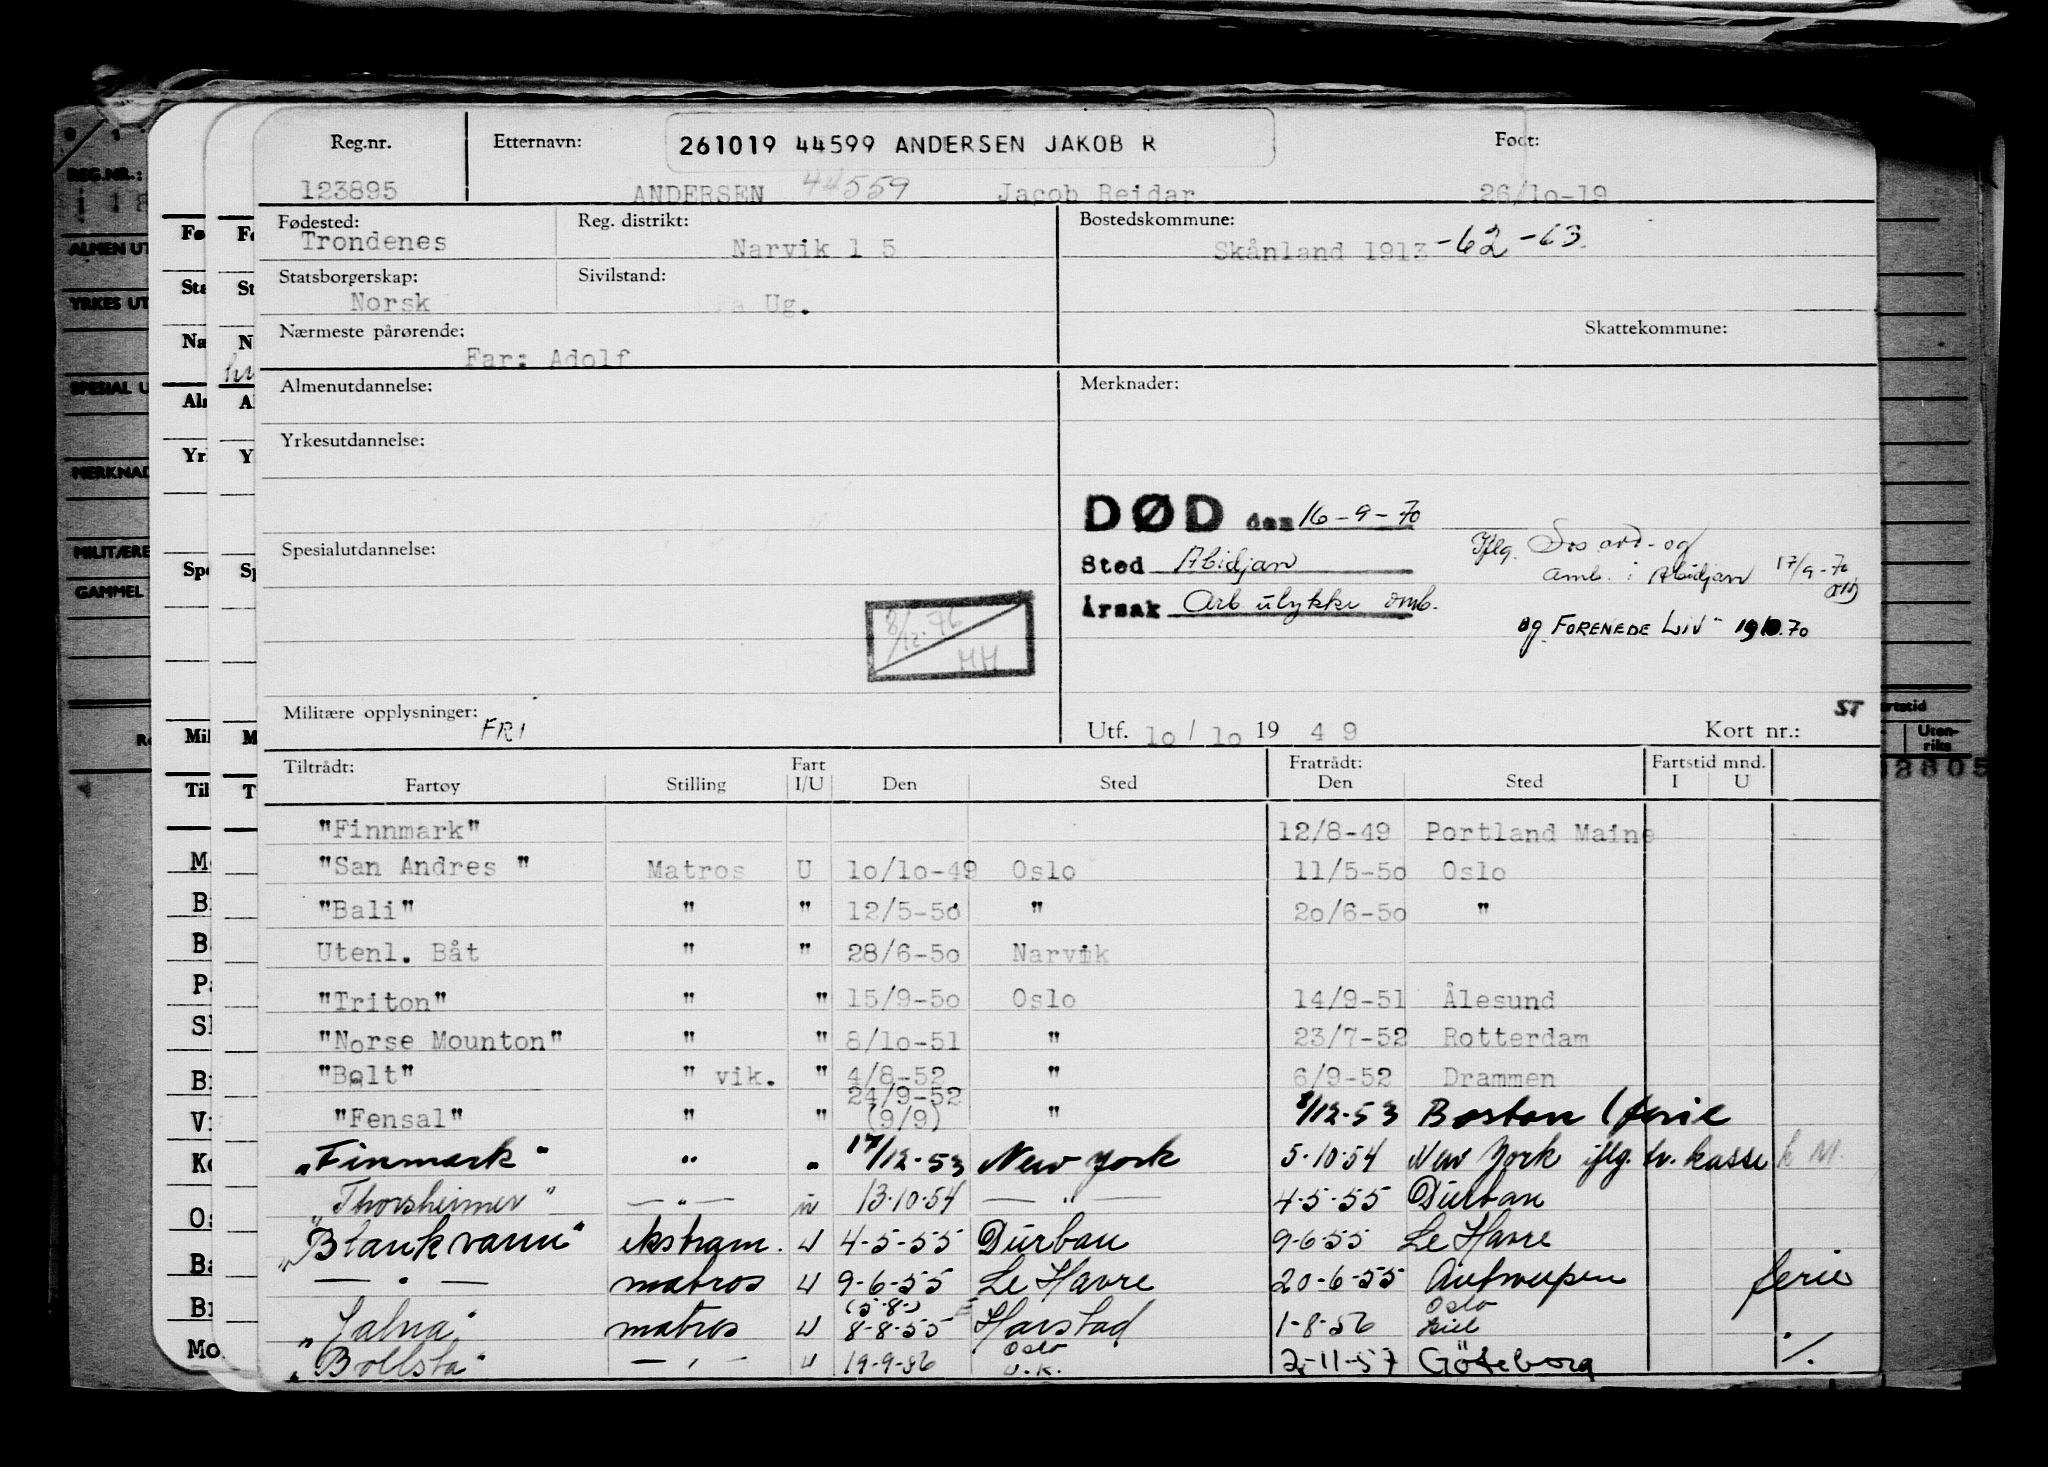 Reg.nr. Etternavn: 261019 44599 ANDERSEN JAKOB R Født:
123895 ANDERSEN 44559 Jacob Reidar 26/10-19
Fødested: Reg. distrikt: Bostedskommune:
Trondenes Narvik 1 5 Skånland 1913 -62 -63
Statsborgerskap: Sivilstand:
Norsk Ug.
Nærmeste pårørende: Skattekommune:
Far: Adolf
Almenutdannelse: Merknader:
Yrkesutdannelse:
DØD den 16-9-70
Spesialutdannelse: Sted Abidjan
Iflg. Sos avd. og
amb. i Abidjan 17/9-70
Årsak Arb ulykke omb.
og FORENEDE LIV 70
8/12.76
HH
Militære opplysninger: FRI Utf. 10/10 19 49 Kort nr.: ST
Tiltrådt: Fart Fratrådt: Fartstid mnd.
Fartøy Stilling I/U Den Sted Den Sted I U
"Finnmark" 12/8-49 Portland Maine
"San Andres " Matros U 10/10-49 Oslo 11/5-50 Oslo
"Bali" " " 12/5-50 " 20/6-50 "
Utenl. Båt " " 28/6-50 Narvik
"Triton" " " 15/9-50 Oslo 14/9-51 Ålesund
"Norse Mounton" " " 8/10-51 " 23/7-52 Rotterdam
"Bolt" " vik. " 4/8-52 " 6/9-52 Drammen
24/9-52
"Fensal" " " (9/9) " 8/12-53 Boston (ferie
"Finmark" " " 17/12-53 New York 5-10-54 New York iflg. tr. kasse
"Thorsheimer" — " — u 13-10-54 — " — 4-5-55 Durban
"Blankvann" ekstram. U 4-5-55 Durban 9-6-55 Le Havre
— " — matros U 9-6-55 Le Havre 20-6-55 Antwerpen ferie
(5-8-) Oslo
"Jalna" matros U 8-8-55 Harstad 1-8-56 Kiel
Oslo
"Bollsta" — " — U 19-9-56 U.K. 2-11-57 Göteborg ./.